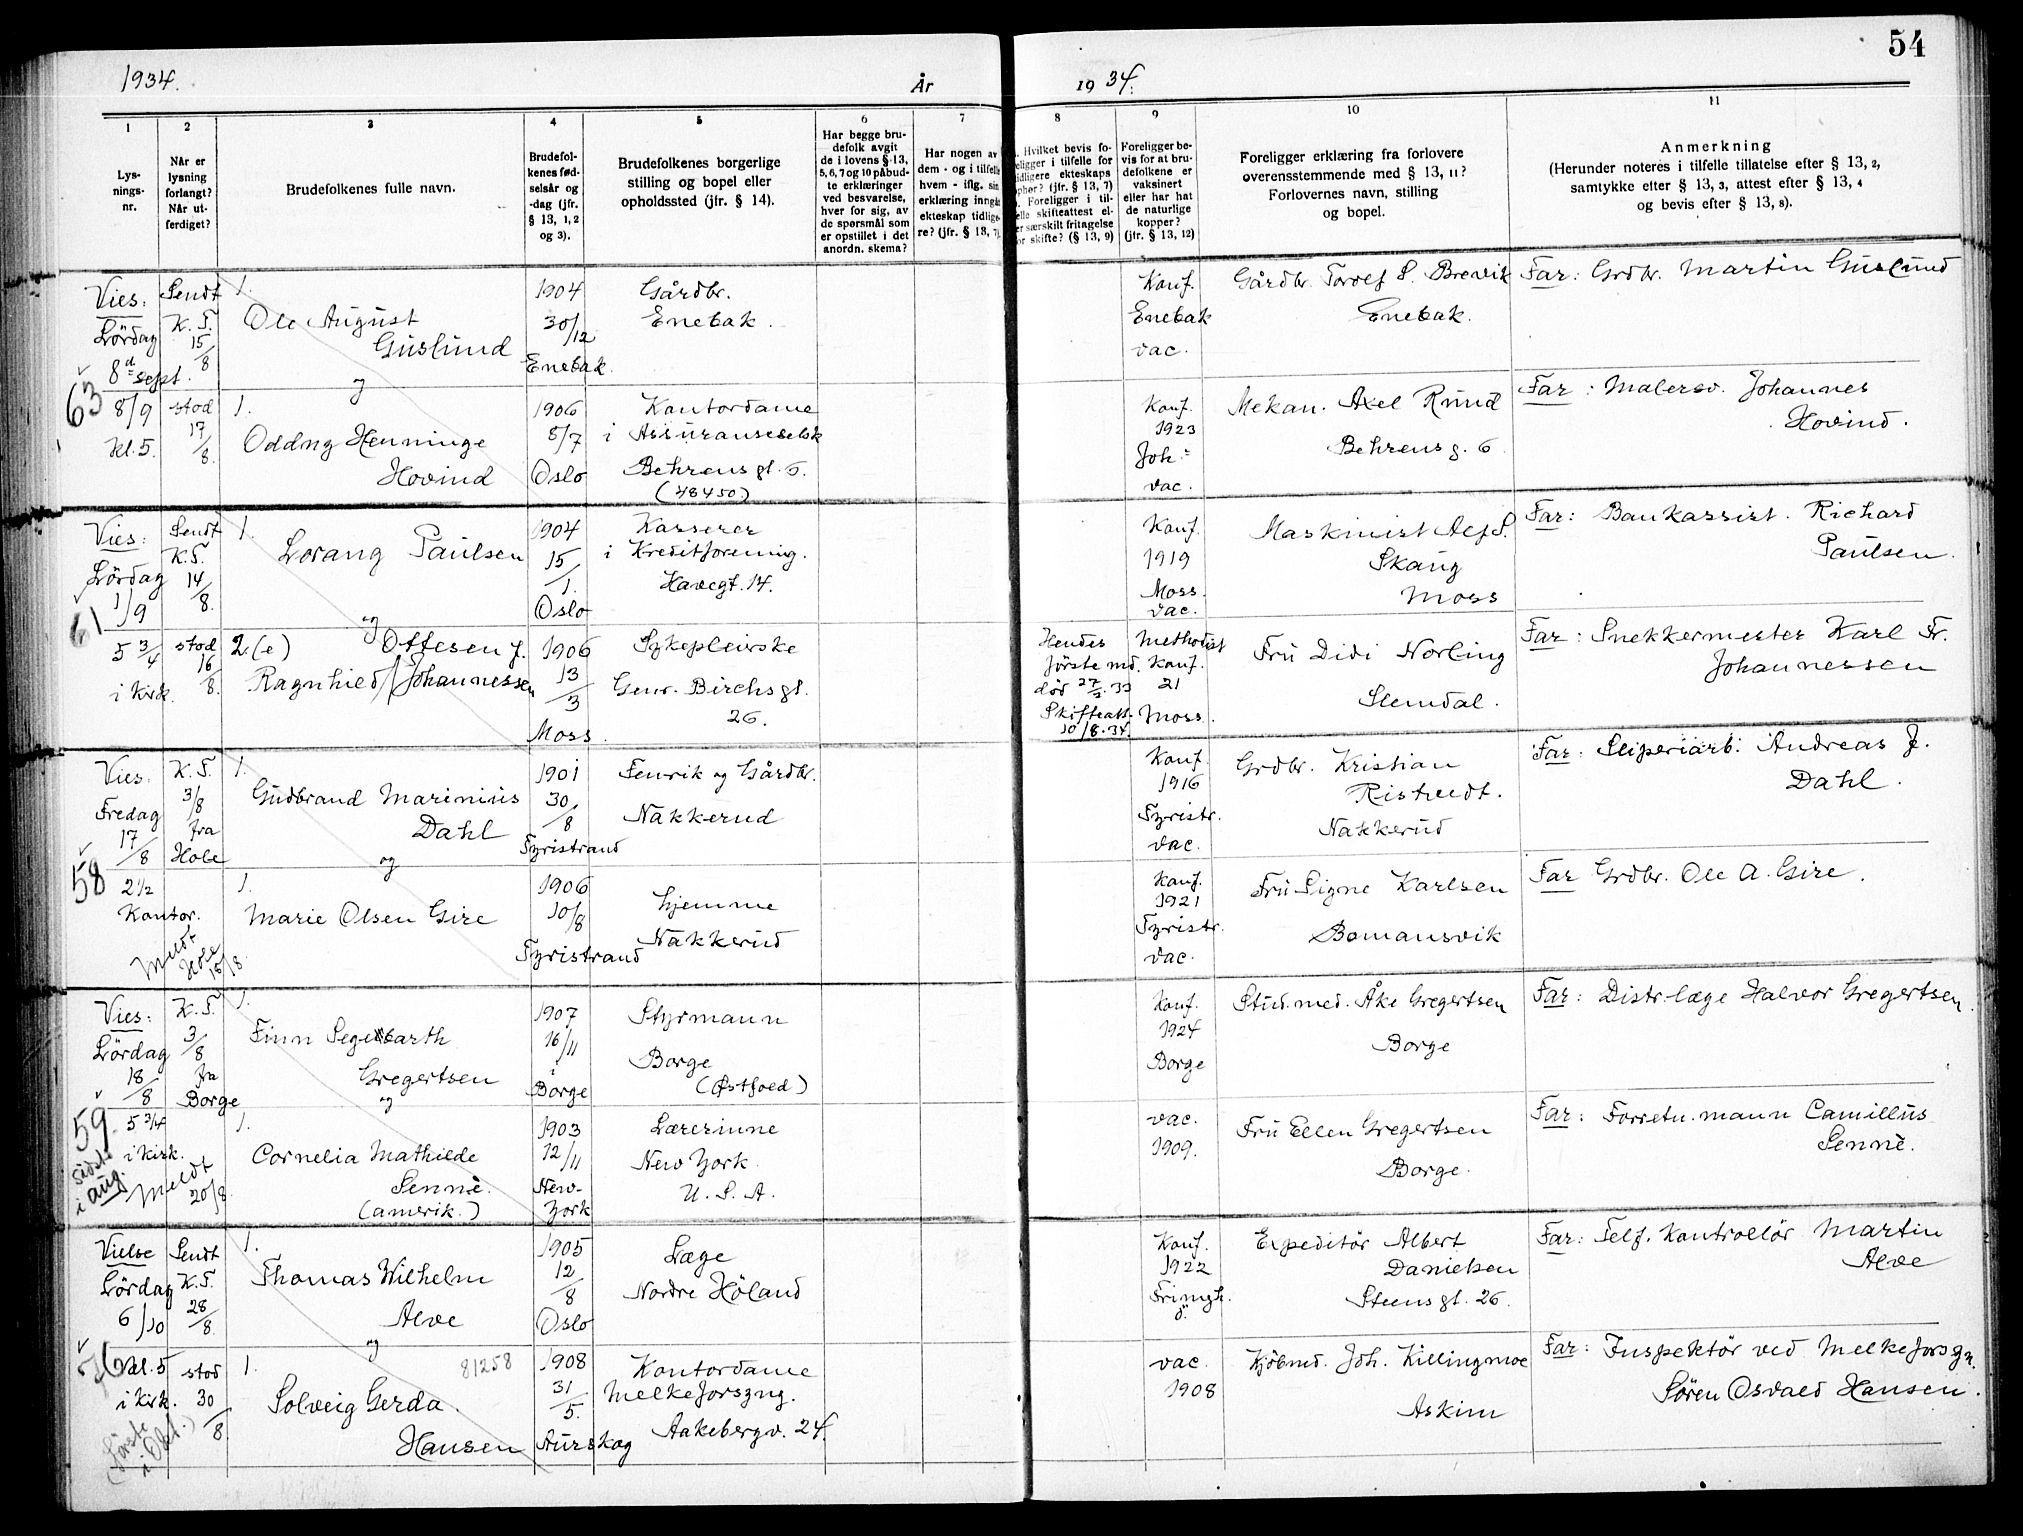 54
1934.
År
1934.
1
2
3
4
5
6
7
8
9
10
11
Lys-
nings-
nr.
Når er
lysning
forlangt?
Når ut-
ferdiget?
Brudefolkenes fulle navn.
Brudefol-
kenes fød-
selsår og
-dag (jfr.
§ 13, 1, 2
og 3).
Brudefolkenes borgerlige
stilling og bopel eller
opholdssted (jfr. § 14).
Har begge bru-
defolk avgit
de i lovens § 13,
5, 6, 7 og 10 påbud-
te erklæringer
ved besvarelse,
hver for sig, av
de spørsmål som
er opstillet i det
anordn. skema?
Har nogen av
dem - og i tilfelle
hvem - iflg. sin
erklæring inngåt
ekteskap tidlige-
re? (jfr. § 13, 7).
Hvilket bevis fo-
religger i tilfelle for
tidligere ekteskaps
ophør? (jfr. § 13, 7)
Foreligger i til-
felle skifteattest el-
ler særskilt fritagelse
for skifte? (§ 13, 9)
Foreligger be-
vis for at bru-
defolkene er
vaksinert
eller har hat
de naturlige
kopper?
(jfr. § 13, 12)
Foreligger erklæring fra forlovere
overensstemmende med § 13, 11?
Forlovernes navn, stilling
og bopel.
Anmerkning
(Herunder noteres i tilfelle tillatelse efter § 13, 2,
samtykke efter § 13, 3, attest efter § 13, 4
og bevis efter § 13, 8).
63
Vies:
Lördag
8d sept.
8/9
kl. 5.
Sendt
K. T.
15/8
stod
17/8.
1.
Ole August
Guslund
og
1904
30/12
Enebak.
Gårdbr.
Enebak.
Konf.
Enebak
vac.
Gårdbr. Torvef S. Brevik
Enebak.
Far: Grdbr. Martin Guslund
1.
Oddny Henninge
Hovind
1906
8/7
Oslo
Kontordame
i Assuranseselsk
Behrensgt. 6.
(48450)
Konf.
1923
Joh.
vac.
Mekan. Axel Ruud
Behrensg. 6
Far: Malersv. Johannes
Hovind.
61
Vies:
Lördag
1/9
5 3/4
i kirk.
Sendt
K.T.
14/8.
stod
16/8.
1.
Lorang Paulsen
og
1904
15/1.
Oslo
Kasserer
i Kreditforening.
Havegt. 14.
Konf.
1919
Moss.
vac.
Maskinist Alf S.
Skaug
Moss
Far: Bankassist. Richard
Paulsen.
2.(e) Ottesen f.
Ragnhild Johannessen
1906
13/3
Moss.
Sykepleirske
Genr. Birchsgt.
26.
Hendes
förste md.
död 33
Skifteatt.
10/8.34.
Methodist
Konf.
21
Moss.
Fru Didi Norling
Slemdal.
Far: Snekkermester Karl Fr.
Johannessen
58
Vies.
Fredag
17/8
2 1/2
Kontor.
Meldt
Hole
18/8
K. T.
3/8
fra
Hole
1.
Gudbrand Marinius
Dahl
og
1901
30/8
Tyristrand
Fenrik og Gårdbr.
Nakkerud
Konf.
1916
Tyristr.
vac.
Grdbr. Kristian
Ristvedt.
Nakkerud
Far: Sliperiarb. Andreas J.
Dahl.
1.
Marie Olsen Gire
1906
10/8
Tyristrand
hjemme
Nakkerud
Konf.
1921
Tyristr.
vac.
Fru Signe Karlsen
Bomansvik
Far Grdbr. Ole A. Gire.
59.
sidste
i aug.
Vies:
Lördag
18/8
5 3/4
i kirk.
Meldt
20/8.
K. T.
3/8
fra
Borge
1.
Finn Segelbarth
Gregertsen
og
1907
16/11
i
Borge
Styrmann
Borge
(Østfold)
Konf.
1924
Borge
Stud. med. Åke Gregertsen
Borge
Far: Distr-læge Halvor Gregertsen.
1.
Cornelia Mathilde
Sennè.
(amerik.)
1903
12/11
New-
York
Lærerinne
New York.
U. S. A.
vac.
1909.
Fru Ellen Gregertsen
Borge.
Far: Forretn.mann Camillus
Sennè.
Vielse
Lördag
6/10
kl. 5
i kirk.
(förste
i Okt.)
Sendt
K.T.
28/8.
stod
30/8
1.
Thomas Wilhelm
Alve
og
1905
12/8
Oslo
Læge
Nordre Höland
Konf.
1922
Frimgh.
o.
Expeditör Albert
Danielsen
Steensgt. 26.
Far: Telf. Kontrollör Martin
Alve
1. 81258
Solveig Gerda.
Hansen
1908
31/5.
Aurskog
Kontordame
Melkeforsyng.
Aakebergv. 24.
vac.
1908
Kjöbmd. Joh. Killingmoe
Askim
Far: Inspektör ved Melkeforsyn.
Sören Osvald Hansen.